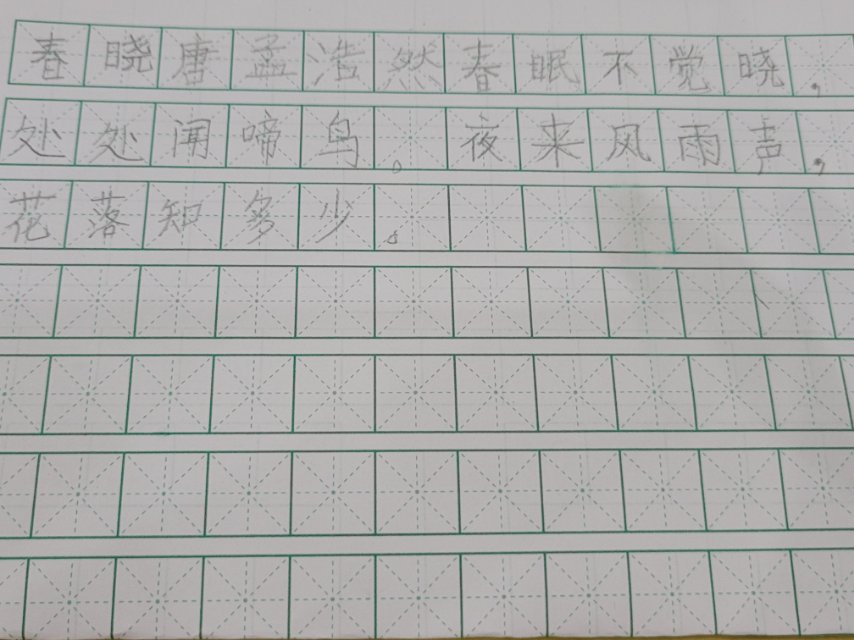 春晓唐孟浩然春眠不觉晓,
处处闻啼鸟。夜来风雨声,
花落知多少。